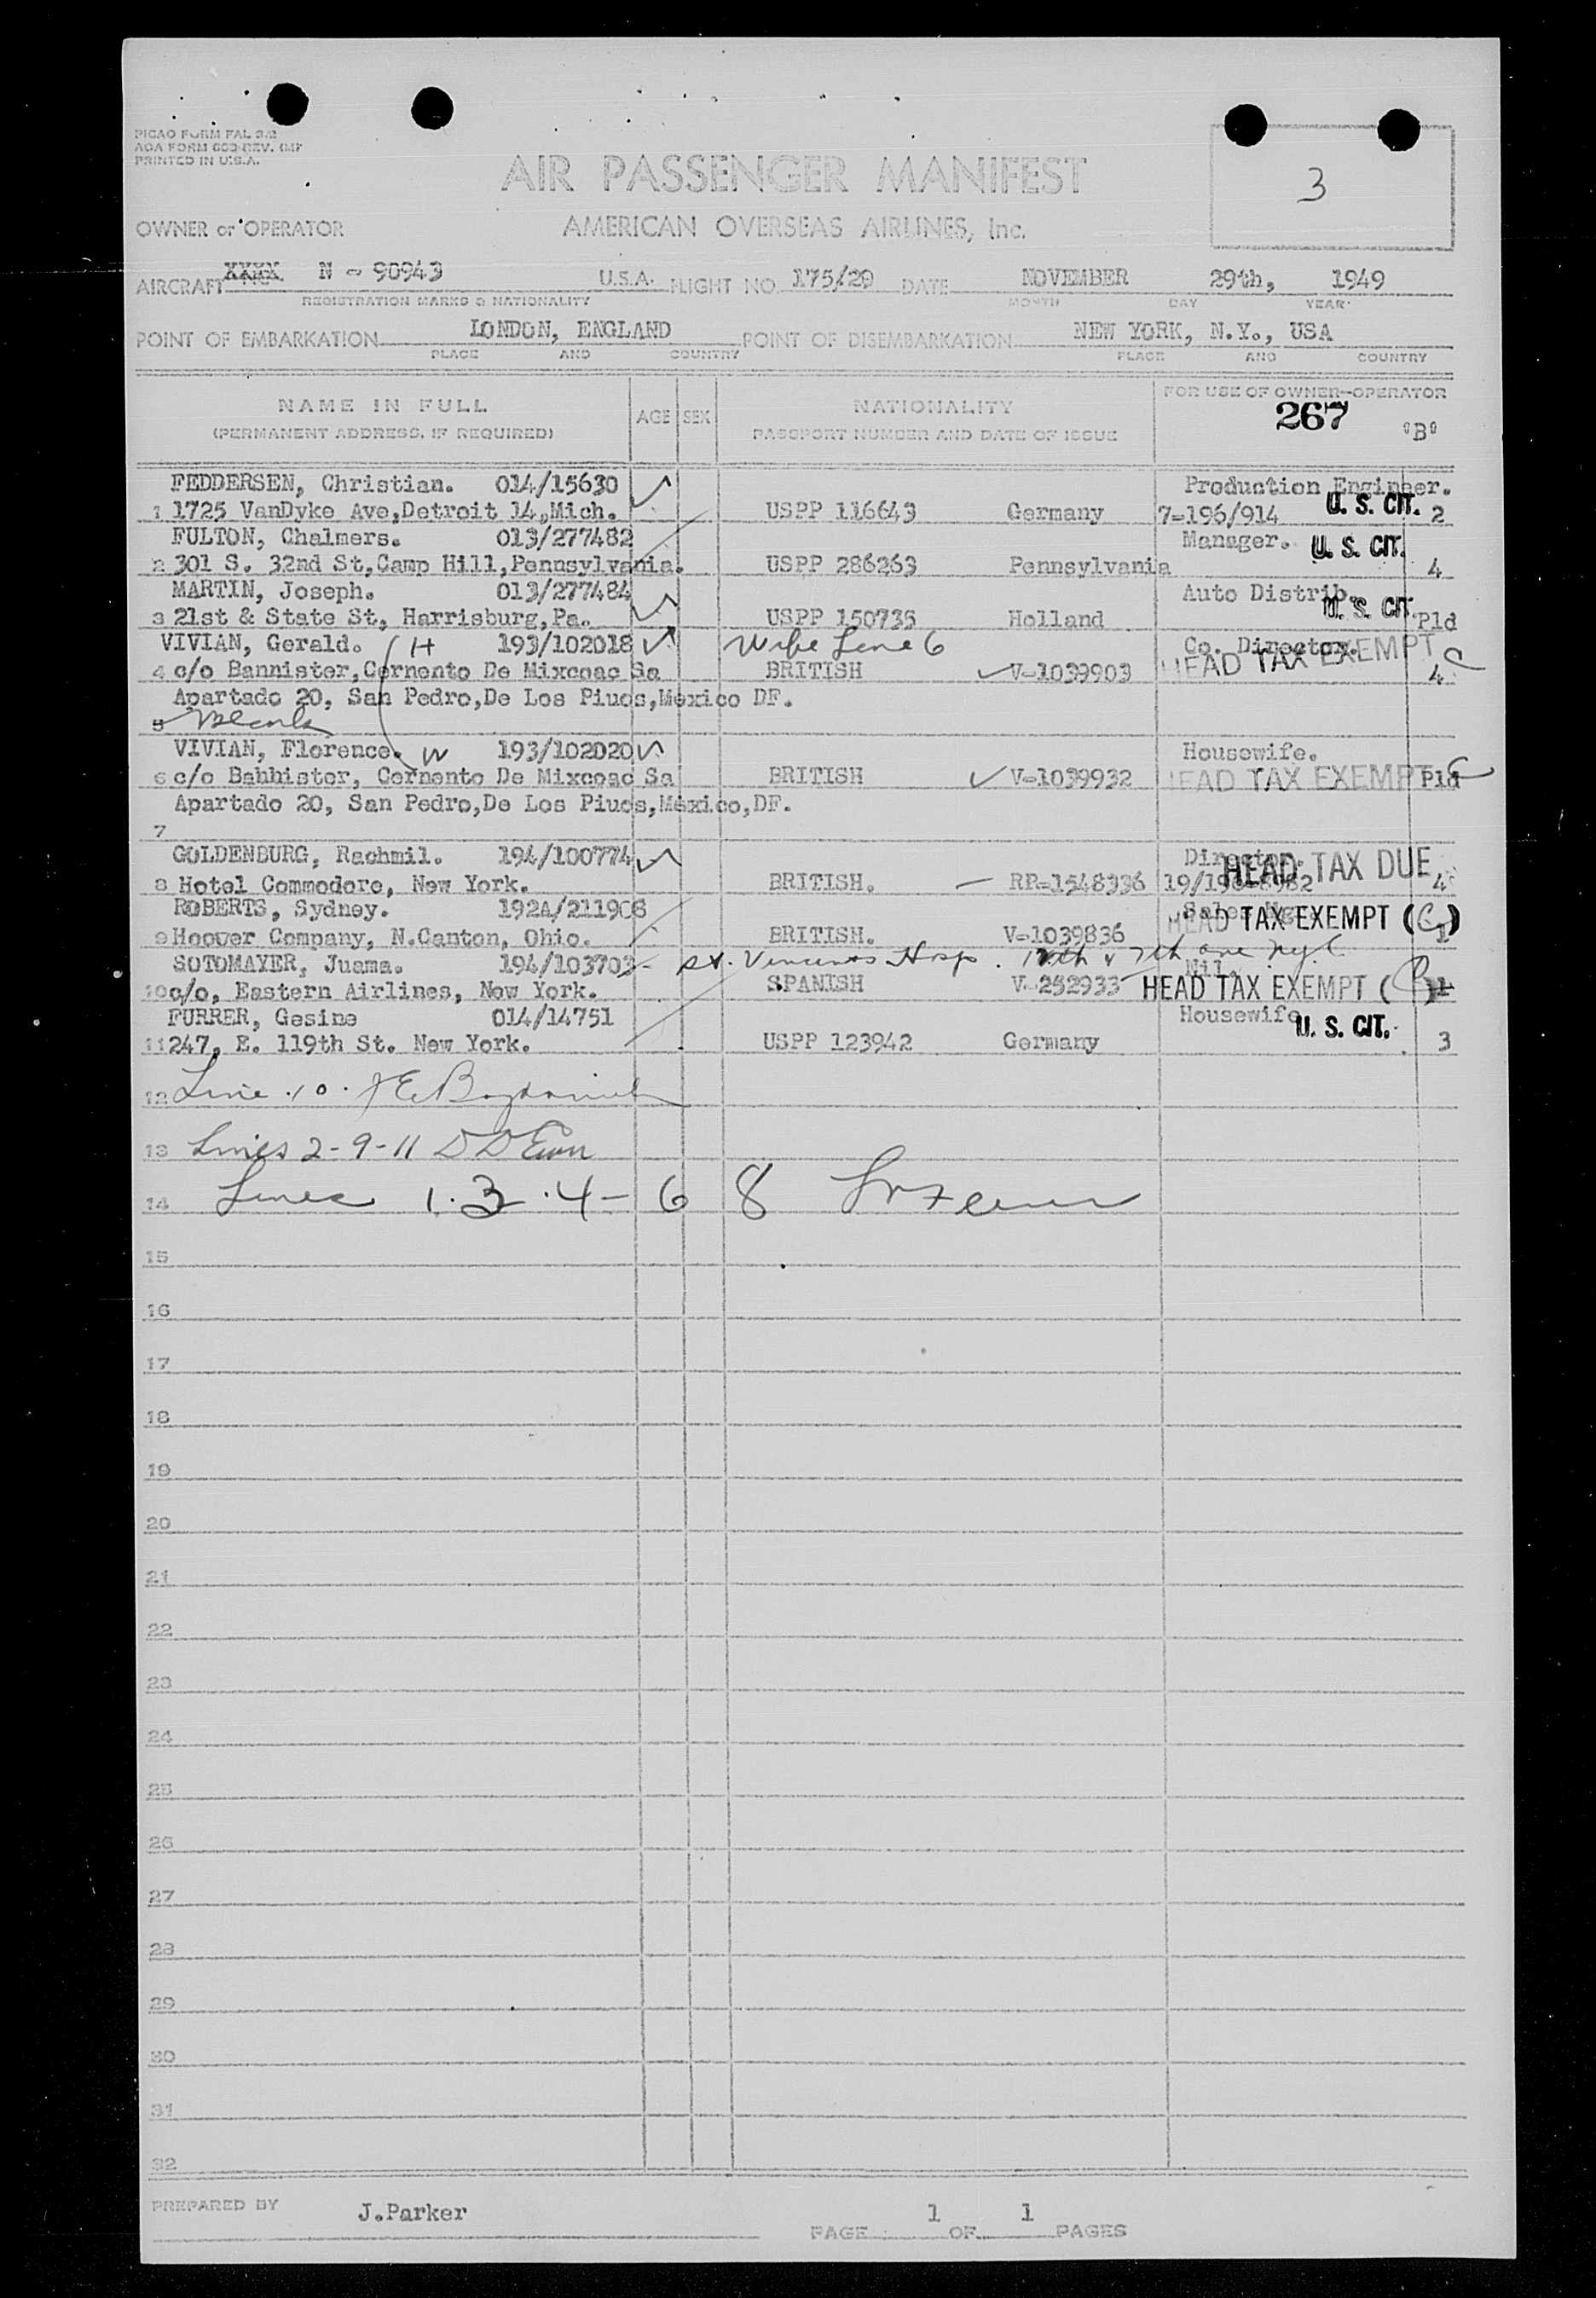 PICAO FORM FAL 3/2
AOA FORM 603-REV. IMF
PRINTED IN U.S.A.
AIR PASSENGER MANIFEST
3
OWNER or OPERATOR
AMERICAN OVERSEAS AIRLINES, Inc.
AIRCRAFT XXXX N - 90943 U.S.A. FLIGHT NO. 175/29 DATE NOVEMBER 29th, 1949
REGISTRATION MARKS & NATIONALITY MONTH DAY YEAR
POINT OF EMBARKATION LONDON, ENGLAND POINT OF DISEMBARKATION NEW YORK, N.Y., USA
PLACE AND COUNTRY PLACE AND COUNTRY
NAME IN FULL AGE SEX NATIONALITY FOR USE OF OWNER-OPERATOR
(PERMANENT ADDRESS, IF REQUIRED) PASSPORT NUMBER AND DATE OF ISSUE 267 "B"
FEDDERSEN, Christian. 014/15630 Production Engineer.
1 1725 VanDyke Ave,Detroit 14,Mich. USPP 116643 Germany 7-196/914 U. S. CIT. 2
FULTON, Chalmers. 013/277482 Manager. U. S. CIT.
2 301 S. 32nd St,Camp Hill,Pennsylvania. USPP 286263 Pennsylvania 4
MARTIN, Joseph. 013/277484 Auto Distrib.
3 21st & State St, Harrisburg,Pa. USPP 150735 Holland U. S. CIT. Pld
VIVIAN, Gerald. H 193/102018 Wife Line 6 Co. Director.
4 c/o Bannister,Cernento De Mixcoac Sa BRITISH V-1039903 HEAD TAX EXEMPT 4 C
Apartado 20, San Pedro,De Los Piuos,Mexico DF.
5
VIVIAN, Florence. W 193/102020 Housewife.
6 c/o Bahhister, Cernento De Mixcoac Sa BRITISH V-1039932 HEAD TAX EXEMPT Pld C
Apartado 20, San Pedro,De Los Piuos,Mexico,DF.
7
GOLDENBURG, Rachmil. 194/100774 Director. HEAD TAX DUE
8 Hotel Commodore, New York. BRITISH. RP-1548336 4
ROBERTS, Sydney. 192A/211908 Sales Mgr.
9 Hoover Company, N.Canton, Ohio. BRITISH. V-1039836 HEAD TAX EXEMPT (C) 1
SOTOMAYER, Juama. 194/103703 St. Vincents Hosp. 12th & 7th ave N.Y.C Nil.
10 c/o, Eastern Airlines, New York. SPANISH V-252933 HEAD TAX EXEMPT ( ) 1
FURRER, Gesine 014/14751 Housewife
11 247, E. 119th St. New York. USPP 123942 Germany U. S. CIT. 3
12 Line 10.
13 Lines 2-9-11 D D
14 Lines 1. 3. 4- 6 8
15
16
17
18
19
20
21
22
23
24
25
26
27
28
29
30
31
32
PREPARED BY J.Parker PAGE 1 OF 1 PAGES